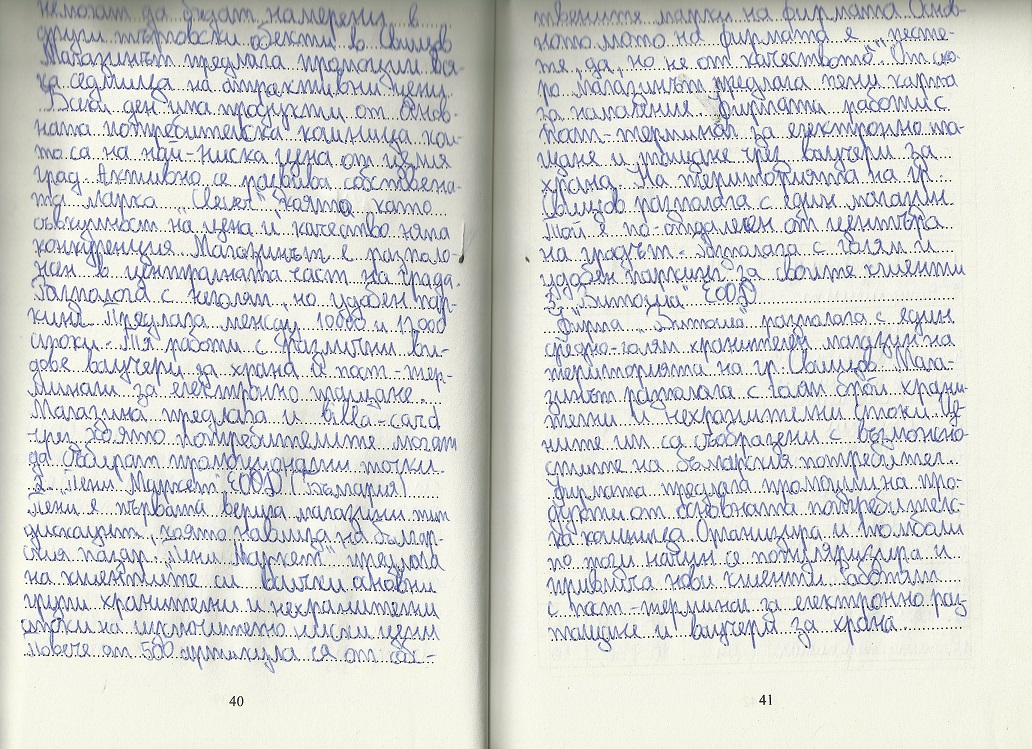 не могат да бъдат намерени в
други търговски обекти в Свищов
Магазинът предлага промоции вся-
ка седмица на атрактивни цени.
Всеки ден има продукти от основ-
ната потребителска кошница кои-
то са на най-ниска цена от целия
град. Активно се развива собствена-
та марка „Clever", която като
съвкупност на цена и качество няма
конкуренция. Магазинът е разполо-
жен в централната част на града.
Разполага с неголям, но удобен пар-
кинг. Предлага между 10000 и 12000
стоки. Тя работи с различни ви-
дове ваучери за храна и пост-тер-
минали за електронно плащане.
Магазина предлага и billa-card
чрез която потребителите могат
да събират промоционални точки.
2. „Пени Маркет" ЕООД (България)
Пени е първата верига магазини тип
дискаунт, която навлиза на българ-
ския пазар. „Пени Маркет" предлага
на клиентите си всички основни
групи хранителни и нехранителни
стоки на изключително ниски цени
Повече от 500 артикула са от соб-
40
твените марки на фирмата. Основ-
ното мото на фирмата е „песте-
те, да, но не от качеството". От ско-
ро магазинът предлага пени карта
за намаления. Фирмата работи с
пост-терминал за електронно пла-
щане и плащане чрез ваучери за
храна. На територията на гр.
Свищов разполага с един магазин
Той е по-отдалечен от центъра
на градът. Разполага с голям и
удобен паркинг за своите клиенти
3. „Витоша" ЕООД
Фирма „Витоша" разполага с един
средно-голям хранителен магазин на
територията на гр. Свищов. Мага-
зинът разполага с голям брой храни-
телни и нехранителни стоки. Це-
ните им са съобразени с възможно-
стите на българския потребител.
Фирмата предлага промоции на про-
дукти от основната потребителс-
ка кошница. Организира и томболи
по този начин се популяризира и
привлича нови клиенти. Работят
с пост-терминал за електронно раз-
плащане и ваучери за храна
41